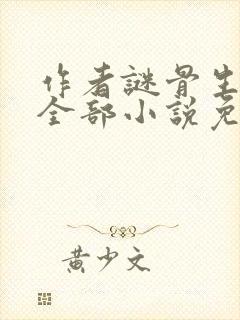 作者謎骨生
全部小說免
黃少文